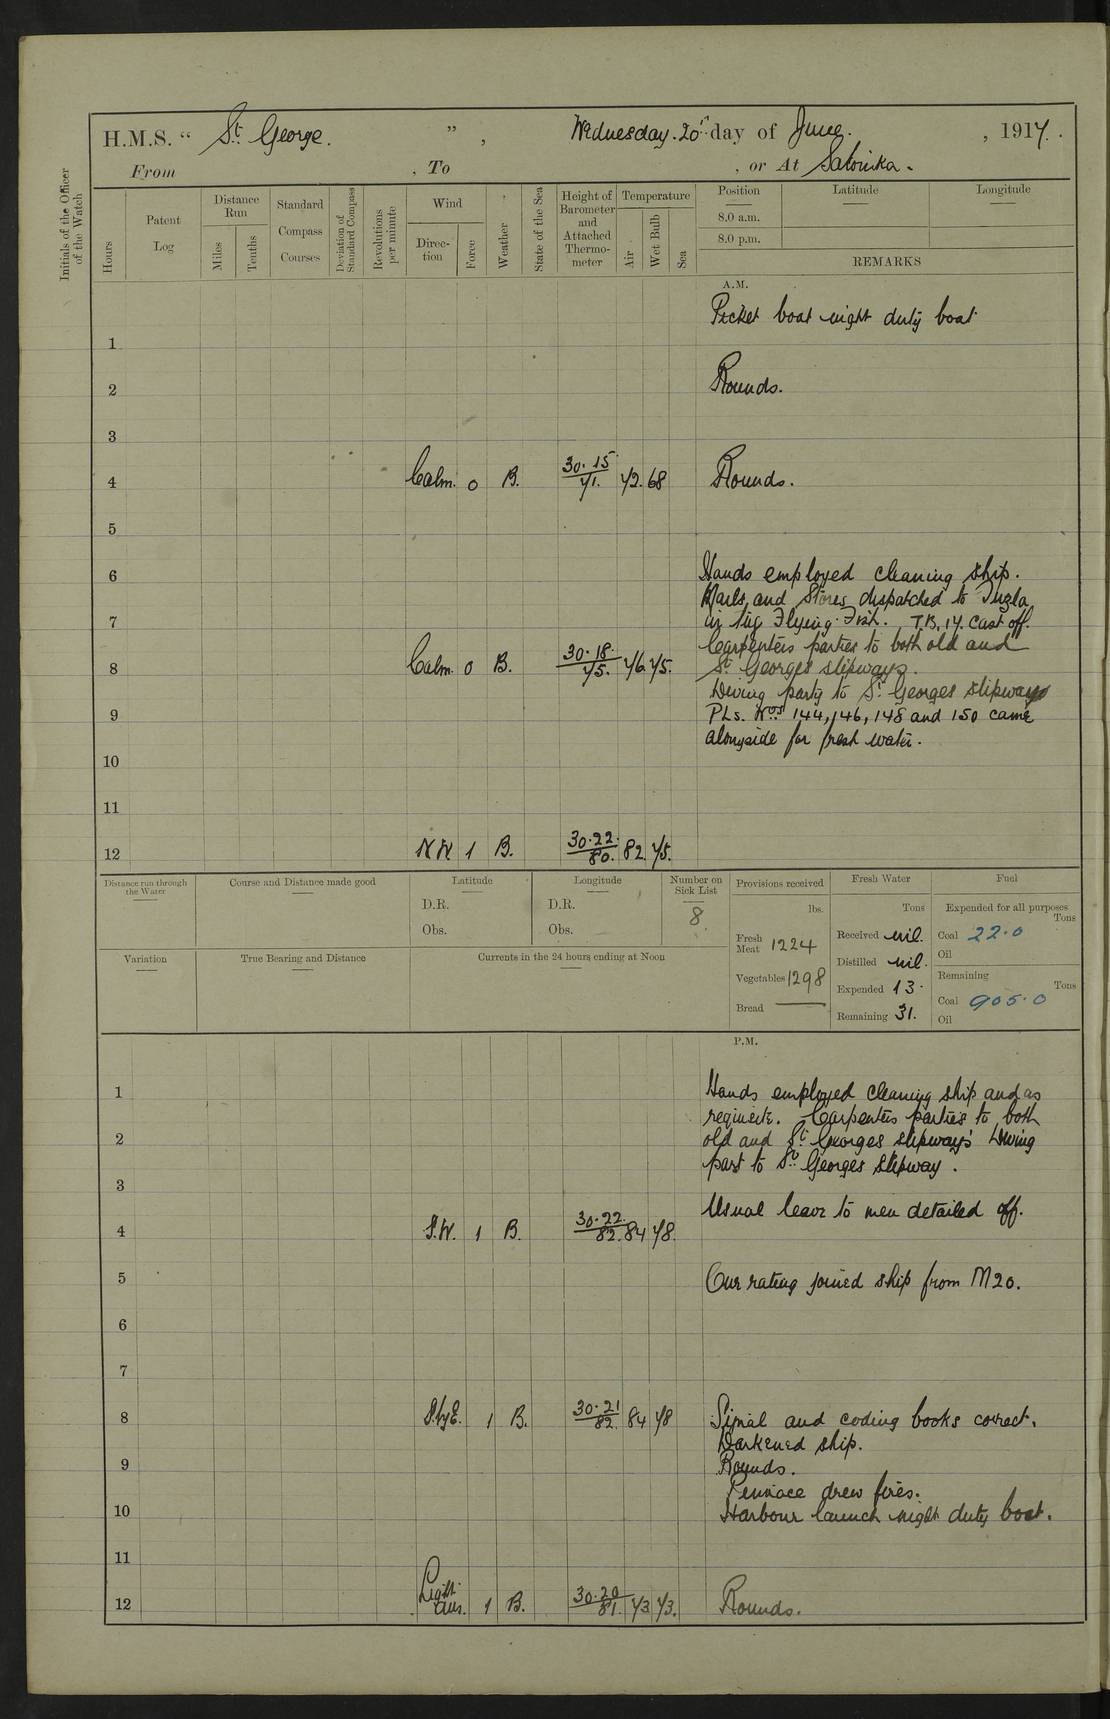 H.M.S. “ St. George. ” , Wednesday. 20th day of June. , 1917.
From , To , or At Salonika.
Initials of the Officer of the Watch
Hours
Patent Log
Distance Run
Miles
Tenths
Standard Compass Courses
Deviation of Standard Compass
Revolutions per minute
Wind
Direction
Force
Weather
State of the Sea
Height of Barometer and Attached Thermometer
Temperature
Air
Wet Bulb
Sea
Position
8.0 a.m.
8.0 p.m.
Latitude
Longitude
REMARKS
A.M.
Picket boat night duty boat
1
2 Rounds.
3
4 Calm. 0 B. 30.15 71. 72. 68 Rounds.
5
6 Hands employed cleaning ship.
Mails and Stores dispatched to Tuzla
7 in tug Flying Fish. T.B. 17. Cast off.
Carpenters parties to both old and
8 Calm. 0 B. 30.18. 75. 76. 75. St Georges slipways.
Diving party to St Georges slipway
9 P.L.s. Nos 144, 146, 148 and 150 came
alongside for fresh water.
10
11
12 NW 1 B. 30.22. 80. 82. 75.
Distance run through the Water
Course and Distance made good
Latitude
D.R.
Obs.
Longitude
D.R.
Obs.
Number on Sick List
8
Provisions received
lbs.
Fresh Meat 1224
Vegetables 1298
Bread —
Fresh Water
Tons
Received nil.
Distilled nil.
Expended 13.
Remaining 31.
Fuel
Expended for all purposes
Tons
Coal 22.0
Oil
Remaining
Tons
Coal 905.0
Oil
Variation
True Bearing and Distance
Currents in the 24 hours ending at Noon
P.M.
1 Hands employed cleaning ship and as
requisite. Carpenters parties to both
2 old and St. Georges slipways Diving
part to St. Georges slipway.
3
Usual leave to men detailed off.
4 S.W. 1 B. 30.22. 82. 84 78.
5 One rating joined ship from M20.
6
7
8 S.byE. 1 B. 30.21 82. 84 78 Signal and coding books correct.
Darkened ship.
9 Rounds.
Pinnace drew fires.
10 Harbour launch night duty boat.
11
12 Light airs. 1 B. 30.20 81. 73 73. Rounds.